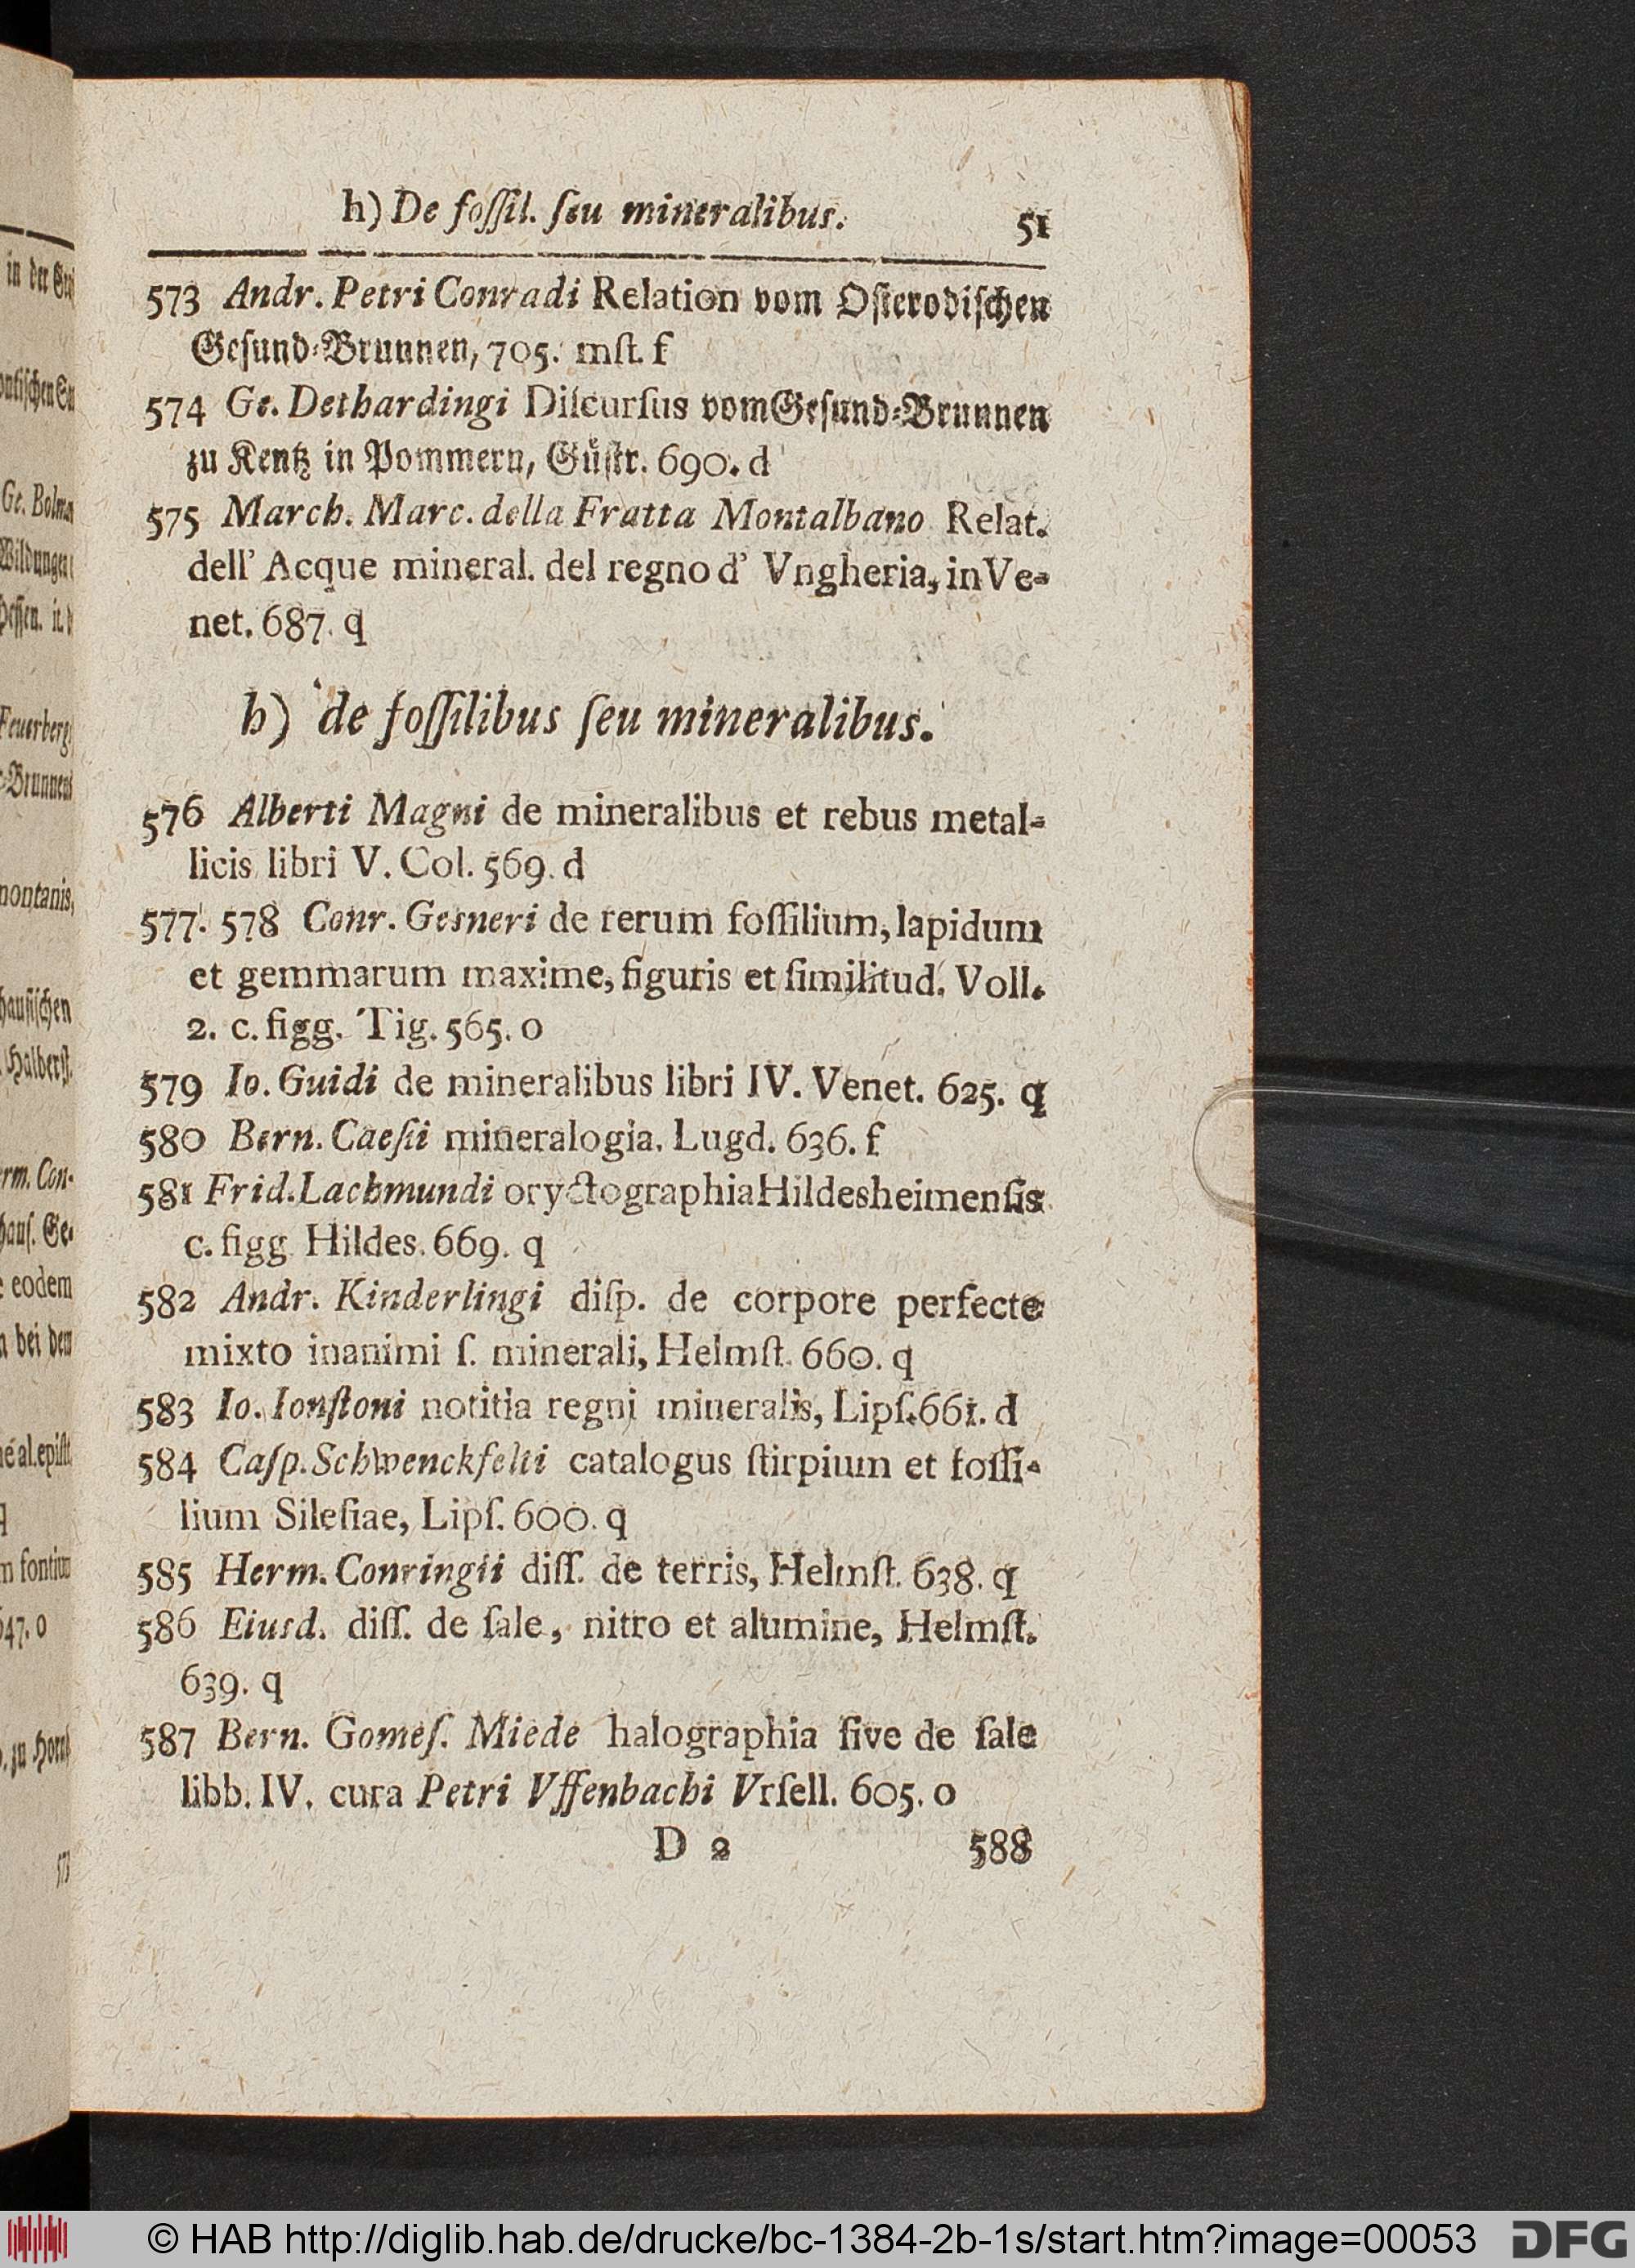 h) De foſſil. ſeu mineralibus. 51
573 Andr. Petri Conradi Relation vom Oſterodiſchen
Geſund-Brunnen, 705. mſt. f
574 Ge. Dethardingi Diſcurſus vom Geſund-Brunnen
zu Kentz in Pommern, Güſtr. 690. d
575 March. Marc. della Fratta Montalbano Relat.
dell' Acque mineral. del regno d' Vngheria, in Ve-
net. 687. q
h) de foſſilibus ſeu mineralibus.
576 Alberti Magni de mineralibus et rebus metal-
licis libri V. Col. 569. d
577. 578 Conr. Gesneri de rerum foſſilium, lapidum
et gemmarum maxime, figuris et ſimilitud. Voll.
2. c. figg. Tig. 565. o
579 Io. Guidi de mineralibus libri IV. Venet. 625. q
580 Bern. Caeſii mineralogia. Lugd. 636. f
581 Frid. Lachmundi oryctographia Hildesheimenſis
c. figg Hildes. 669. q
582 Andr. Kinderlingi diſp. de corpore perfecte
mixto inanimi ſ. minerali, Helmſt. 660. q
583 Io. Ionſtoni notitia regni mineralis, Lipſ. 661. d
584 Caſp. Schwenckfelti catalogus ſtirpium et foſſi-
lium Sileſiae, Lipſ. 600. q
585 Herm. Conringii diſſ. de terris, Helmſt. 638. q
586 Eiusd. diſſ. de ſale, nitro et alumine, Helmſt.
639. q
587 Bern. Gomeſ. Miede halographia ſive de ſale
libb. IV. cura Petri Vffenbachi Vrſell. 605. o
D 2 588
in der
Ge.
montanis,
Halberſt.
rm. Con-
hauſ. Ge-
eodem
bei den
647. o
© HAB http://diglib.hab.de/drucke/bc-1384-2b-1s/start.htm?image=00053 DFG